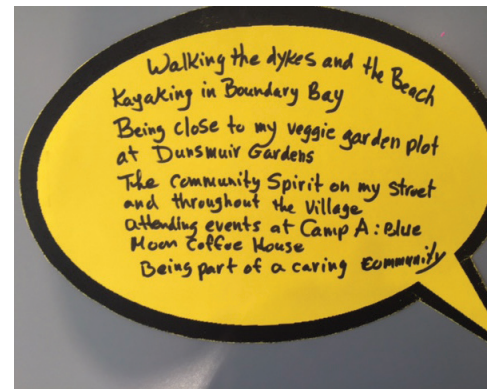 Walking the dykes and the Beach
Kayaking in Boundary Bay
Being close to my veggie garden plot
at Dunsmuir Gardens
The Community Spirit on my street
and throughout the Village
attending events at Camp A: Blue
Moon Coffee House
Being part of a caring community